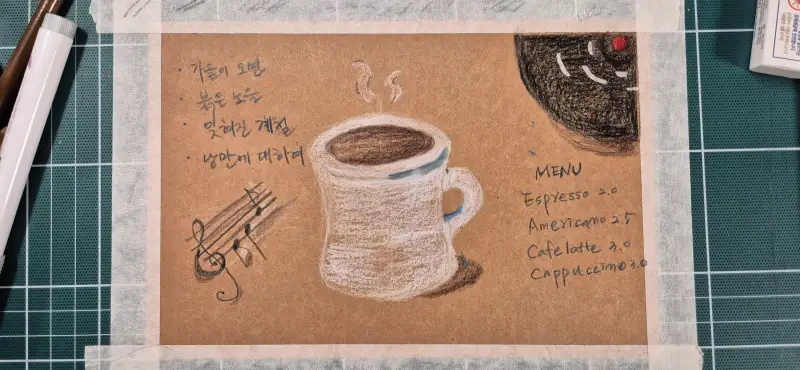 · 가을이 오면
· 붉은 노을
· 잊혀진 계절
· 낭만에 대하여
MENU
Espresso 2.0
Americano 2.5
Cafe latte 3.0
Cappuccino 3.0